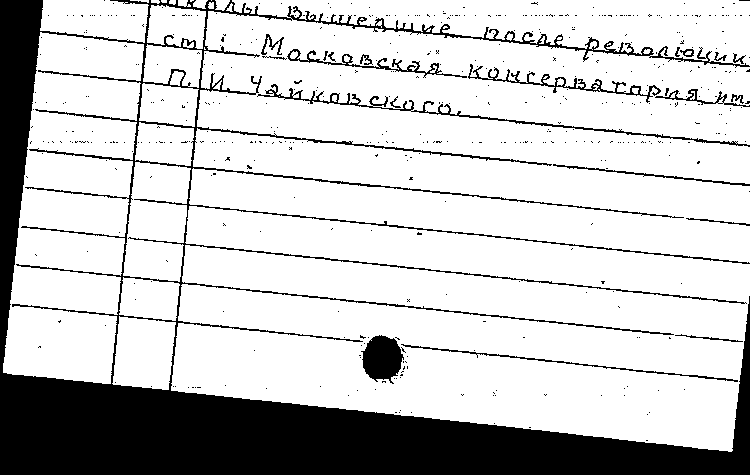 школы, вышедшие после революции,
см.: Московская консерватория им.
П. И. Чайковского.